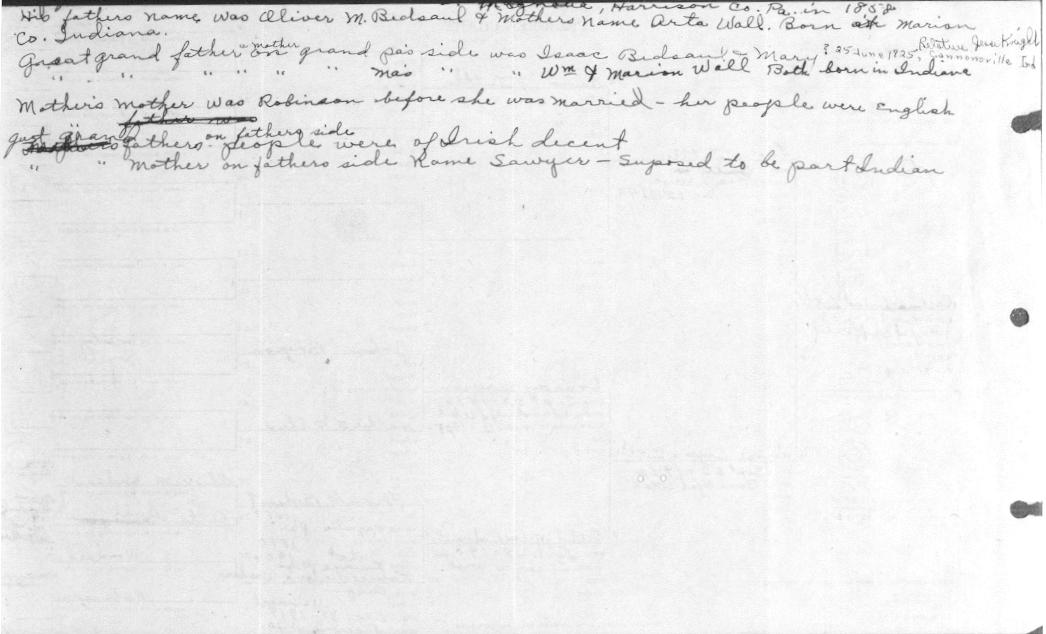 Magnolia, Harrison Co. Pa. in 1858
His fathers name was Oliver M. Bedsaul & Mothers Name Arta Wall. Born in Marion
Co. Indiana.
Great grand father & mother on grand pa's side was Isaac Bedsaul & Mary ? 25 June 1825, Relative Jesse Knight
" " " " " " " Ma's " " Wm & Marion Wall Both born in Indiana
Mother's Mother was Robinson before she was married - her people were English
father was
great grand fathers people were of Irish decent on fathers side
" " Mother on fathers side Name Sawyer - Suposed to be part Indian